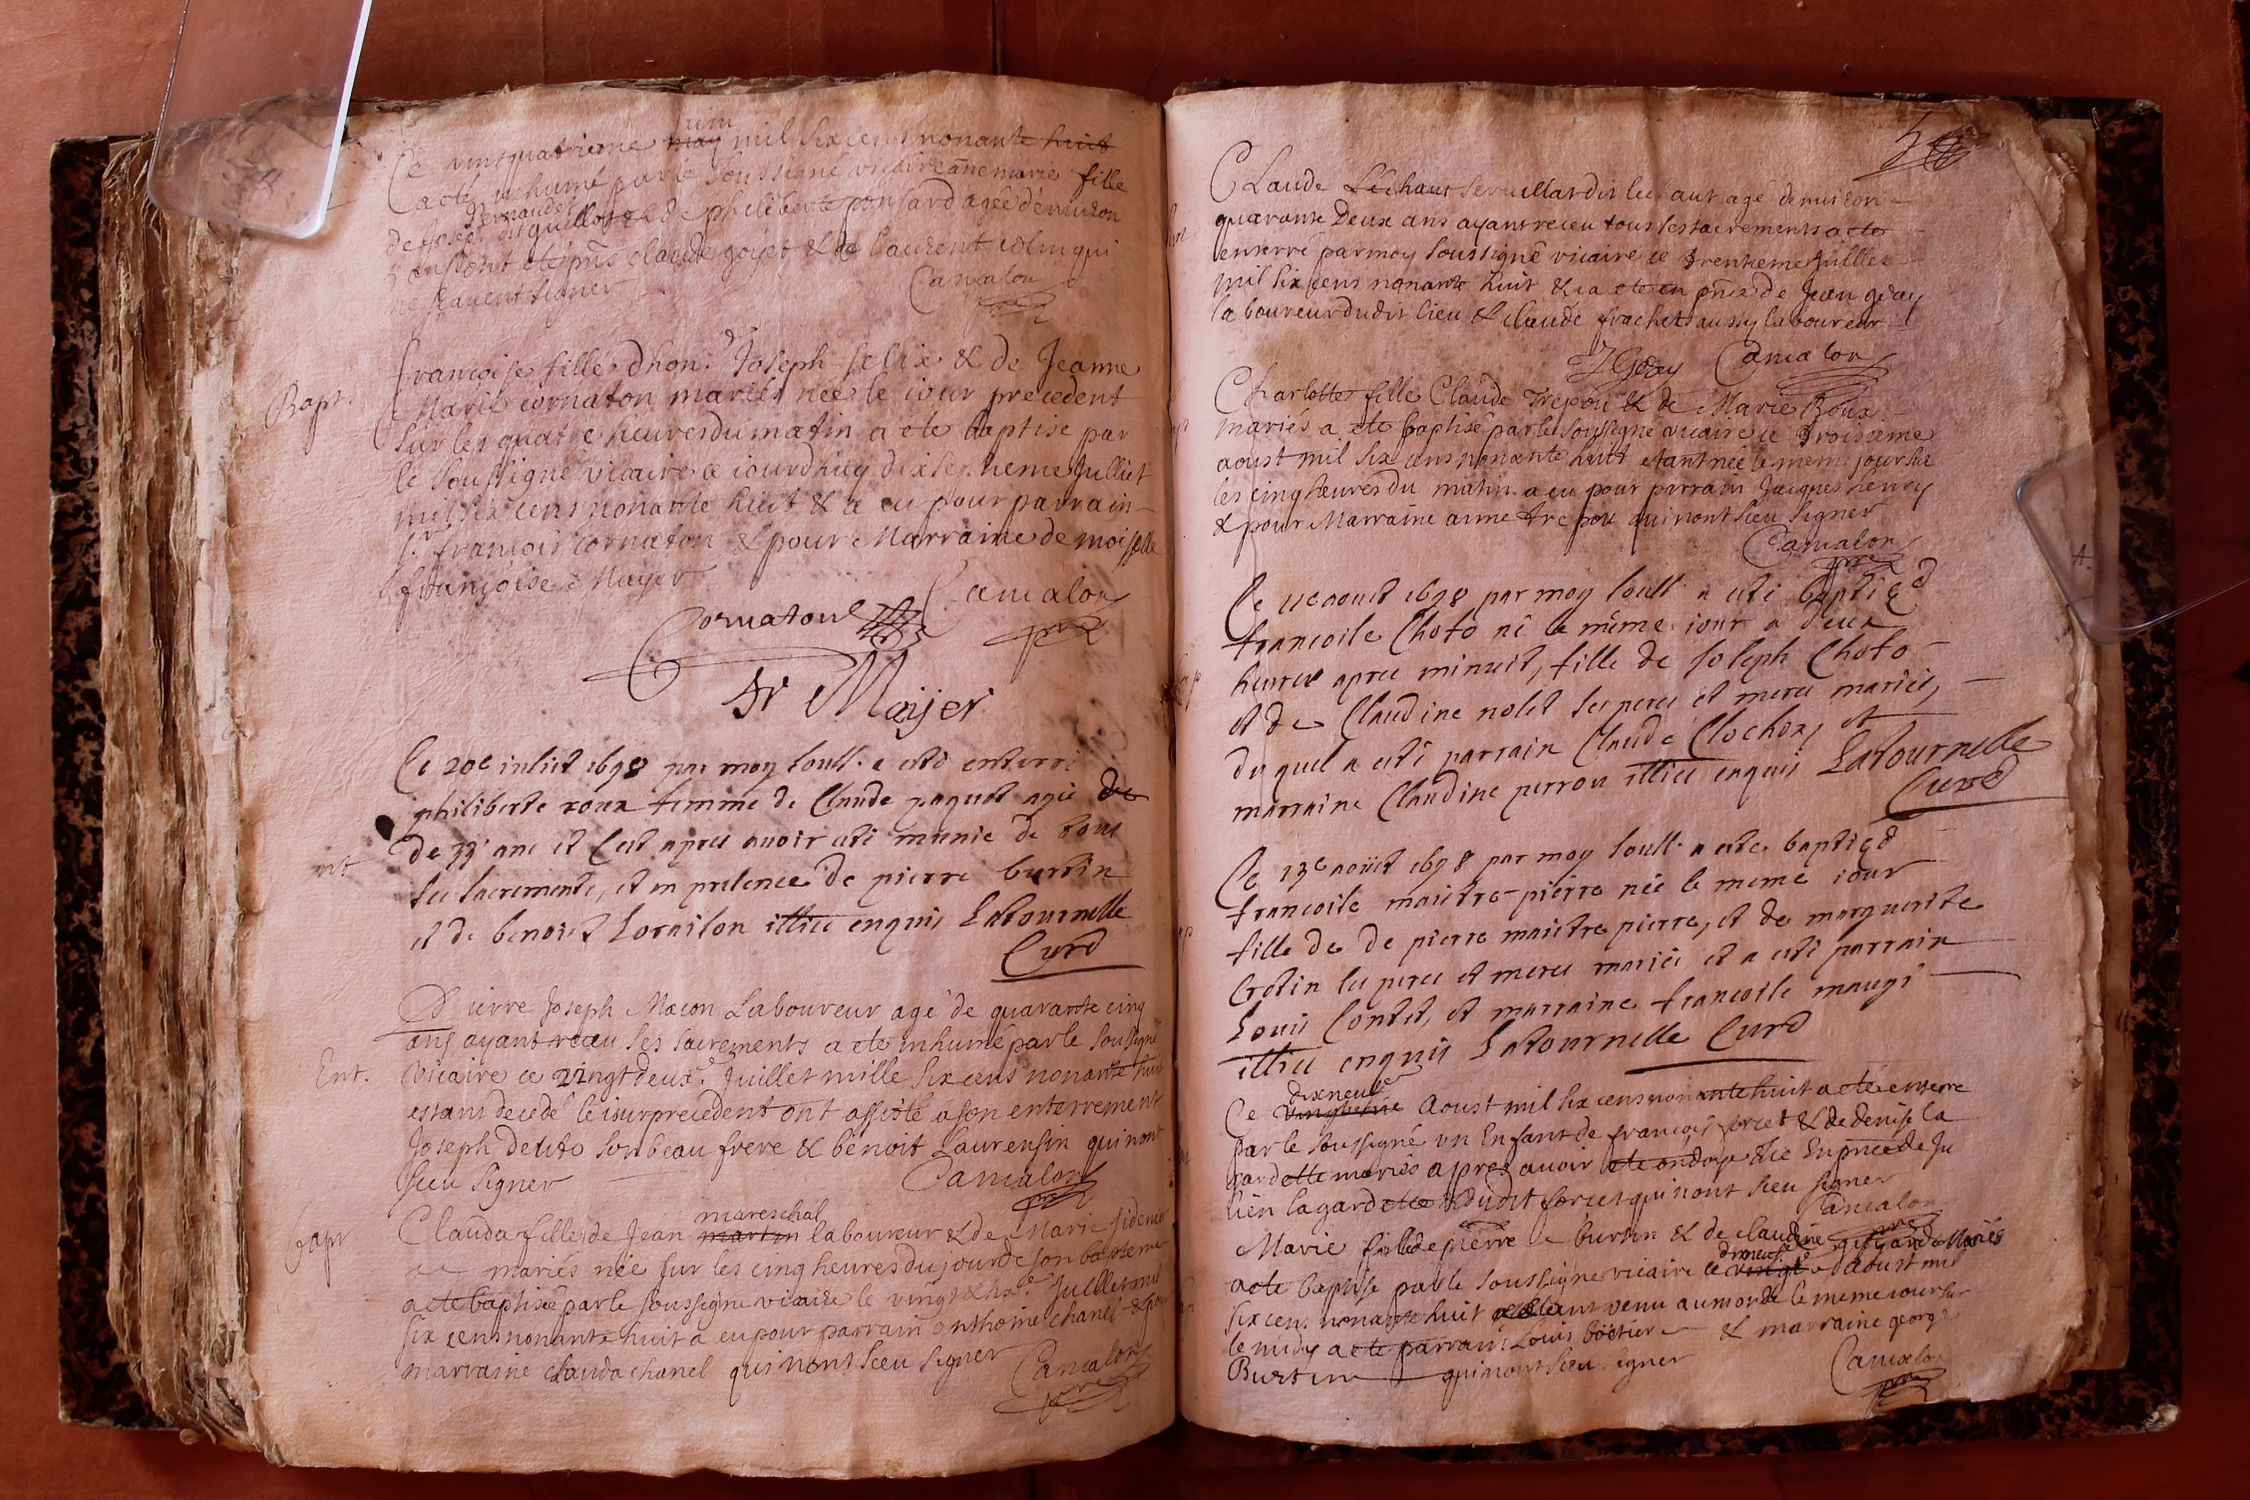 juin
Ce vintquatrieme may mil six cens nonante huit
a ete inhumé par le soussigné vicaire anne marie fille
de Joseph dit guillot & de philiberte ponsard agée d'environ
ans ont ete pñs claude goyet & de laurent colin qui
ne scavent signer
Camalon
Bapt.
francoise fille d'hon. Joseph felix & de Jeanne
Marie cornaton mariés née le iour precedent
sur les quatre heures du matin a ete baptise par
le soussigné vicaire ce iourdhuy dix septieme Julliet
mil six cens nonante huit & a eu pour parrain
sr. francois cornaton & pour Marraine demoiselle
françoise Mayer
Cornaton Camalon
fr Maijer
Ce 20e iuliet 1698 par moy souss. a esté enterré
philiberte roux femme de Claude paquet agée de
ent
de ans et cest apres avoir esté munie de tous
ses sacrements, et en presence de pierre burtin
et de benoist Loraison illits enquis Latournelle
Curé
Pierre Joseph Macon Laboureur agé de quarante cinq
ans ayant receu ses sacrements a ete inhumé par le soussigné
Ent.
vicaire ce vingtdeux.e Juillet mille six cens nonante huit
estant decedé le iour precedent ont assisté a son enterrement
Joseph son beau frere & benoit Laurensin qui nont
sceu signer Camalon
mareschal
bapt
Clauda fille de Jean martin laboureur & de Marie
mariés née sur les cinq heures du jour de son bapteme
a ete baptisée par le soussigne vicaire le vingt Juillet mil
six cens nonante huit a eu pour parrain anthoine chanel & pour
marraine clauda chanel qui nont sceu signer Camalon
Claude Lechaut se vuillardit lechaut agé denviron
quarante Deux ans ayant receu tous ses sacrements a ete
enterré par moy soussigné vicaire ce trentieme Juilliet
mil six cens nonante huit & ca ete en pñce de Jean geay
laboureur dudit lieu & claude frachet aussy laboureur
J Geay Camalon
Charlotte fille Claude Trepou & de Marie Roux
mariés a ete baptisé par le soussigné vicaire ce troisieme
aoust mil six cens nonante huit etant née le mem. jour sur
les cinq heures du matin a eu pour parrain Jacques henry
& pour Marraine anne trepou qui nont sceu signer
Camalon
Ce 11e aoust 1698 par moy souss. a esté baptizé
francoise Choto né le même iour a deux
heures apres minuit, fille de Joseph Choto
et de Claudine nolet ses peres et meres mariés,
duquel a esté parrain Claude Clochon, et
marraine Claudine perrou illits enquis Latournelle
Curé
Ce 13e aoüst 1698 par moy souss. a esté baptizé
francoise maistre-pierre née le meme iour
fille de de pierre maistre pierre, et de marguerite
Crotin ses peres et meres mariés et a esté parrain
Louis Contet, et marraine francoise maugé
illits enquis Latournelle Curé
dixneuf
Ce vingtieme Aoust mil six cens nonante huit a eté enterre
par le soussigné un Enfant de francois forcet & de denise la
gardette mariés apres avoir ete ondoye & ce En pñce de Ju
lien lagardette & dudit forcet qui nont sceu signer
Camalon
Marie fille de pierre burtin & de claudine guigard Mariés
dixneuf
a ete baptisse par le soussigne vicaire ce vingt.e d'aoust mil
six cens nonante huit estant venu au monde le meme iour sur
le midy a ete parrain Louis boetier & marraine george
Burtin qui nont sceu signer Camalon